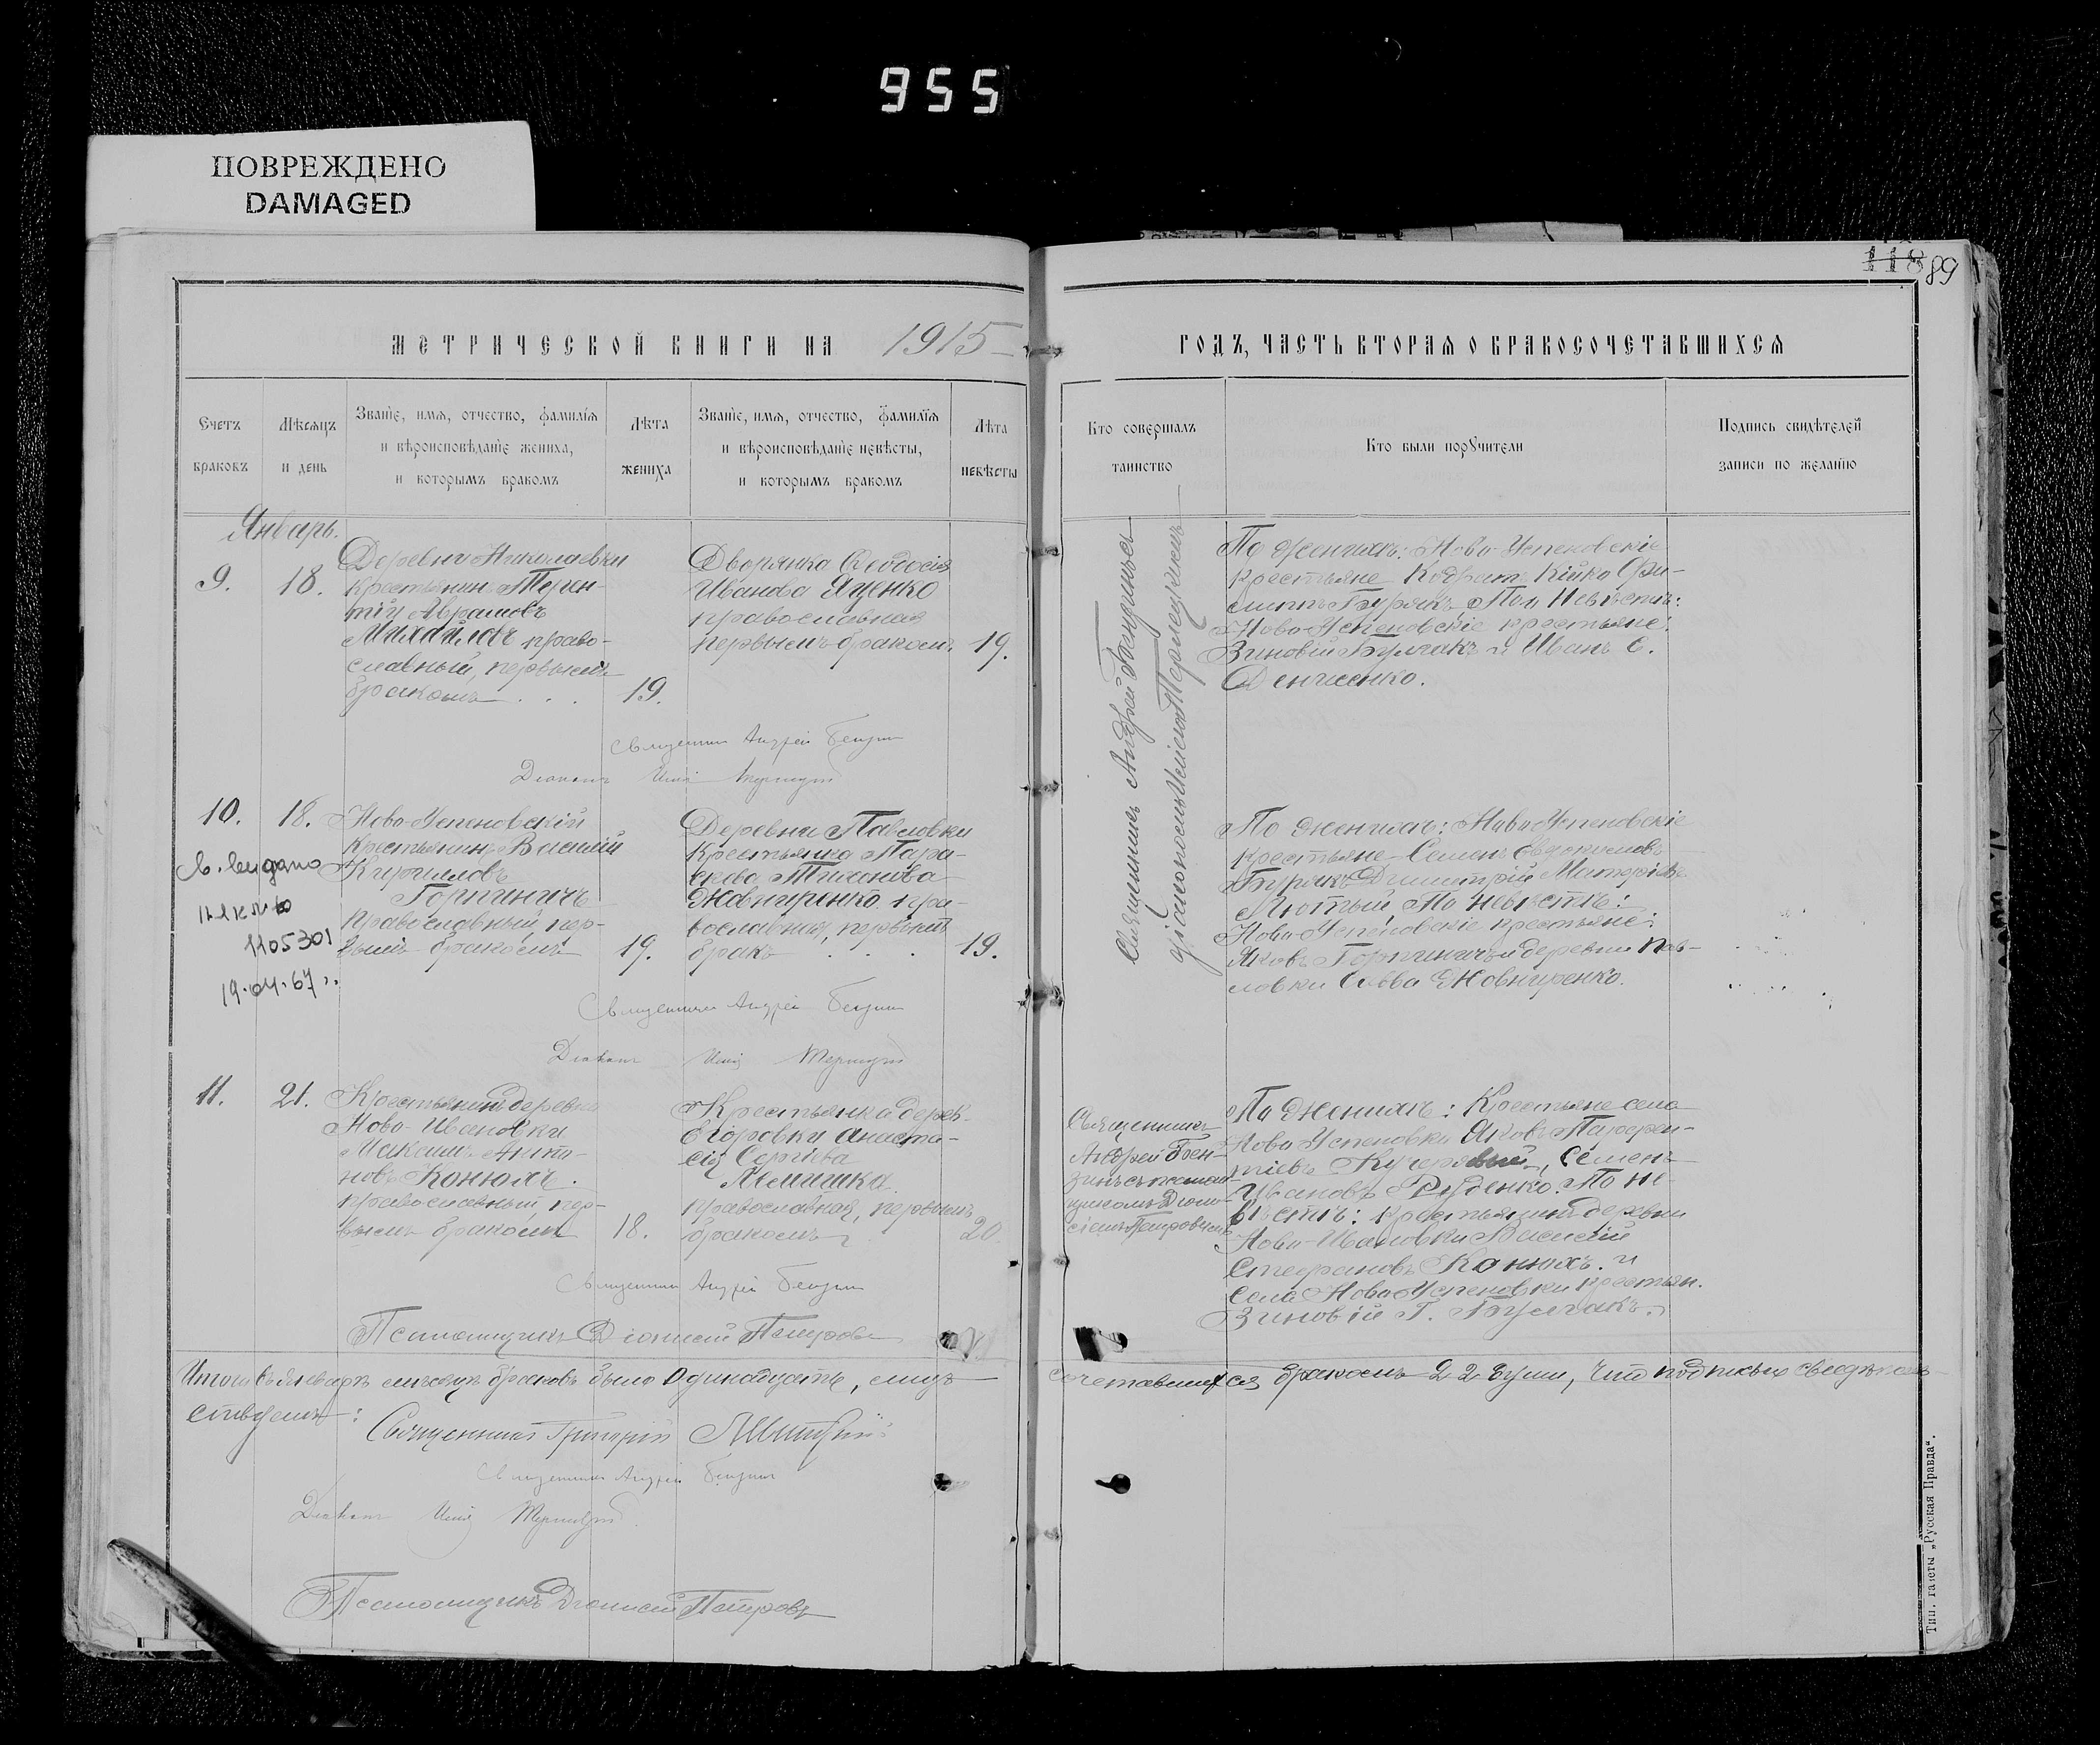 955
ПОВРЕЖДЕНО
DAMAGED
118 89
МЕТРИЧЕСКОЙ КНИГИ НА 1915
ГОДЪ, ЧАСТЬ ВТОРАЯ О БРАКОСОЧЕТАВШИХСЯ
Счетъ браковъ
Мѣсяцъ и день
Званіе, имя, отчество, фамилія
и вѣроисповѣданіе жениха,
и которымъ бракомъ
Лѣта жениха
Званіе, имя, отчество, фамилія
и вѣроисповѣданіе невѣсты,
и которымъ бракомъ
Лѣта невѣсты
Кто совершалъ таинство
Кто были поручители
Подпись свидѣтелей
записи по желанію
Январь.
9. 18.
Деревни Николаевки
крестьянинъ Терен-
тій Аврамовъ
Михайловъ право-
славный, первымъ
бракомъ . . . 19.
Дворянка Ѳеодосія
Иванова Яценко
православная
первымъ бракомъ 19.
Священникъ Андрей
діаконъ
По женихѣ: Ново-Успеновскіе
крестьяне Кодратъ Кійко Фи-
липпъ Бурякъ По Невѣстѣ:
Ново-Успеновскіе крестьяне:
Зиновій Булгакъ и Иванъ Е.
Денисенко.
Священникъ Андрей
Діаконъ
10. 18.
Ново-Успеновскій
крестьянинъ Василій
Кириловъ
Горпиничъ
православный, пер-
вымъ бракомъ 19.
1105301
19.04.67 г.
Деревни Павловки
крестьянка Пара-
скева
Жовниренко, пра-
вославная, первымъ
бракъ . . . 19.
По женихѣ: Ново Успеновскіе
крестьяне Семенъ Евдокимовъ
Бурякъ Димитрій
Лютый, По невѣстѣ:
Ново-Успеновскіе крестьяне:
Яковъ Горпиничъ и деревни Пав-
ловки Савва Жовниренко.
Священникъ Андрей
Діаконъ
11. 21.
Крестьянинъ деревни
Ново-Ивановки
Максимъ Анто-
новъ Конюхъ.
православный, пер-
вымъ бракомъ 18.
Крестьянка дерев.
Егоровки Анаста-
сія Сергіева
православная, первымъ
бракомъ 20.
Священникъ
Андрей Бен-
зинъ съ псалом-
щикомъ Діони-
сіемъ Петровымъ
По Женихѣ: Крестьяне села
Ново Успеновки Яковъ
Семенъ
Ивановъ Руденко. По не-
вѣстѣ: крестьянинъ деревни
Ново-Ивановки Василій
Стефановъ Конюхъ. и
села Ново Успеновки крестьян.
Зиновій Г. Булгакъ.
Священникъ Андрей
Псаломщикъ Діонисій Петровъ
Итого въ Январѣ мѣсяцѣ браковъ было Одинадцать, лицъ
сочетавшихся бракомъ 22 души, что подписью свидѣтель-
ствуемъ:
Священникъ Григорій
Священникъ Андрей
Діаконъ
Псаломщикъ Діонисій Петровъ
Тип. газеты „Русская Правда“.